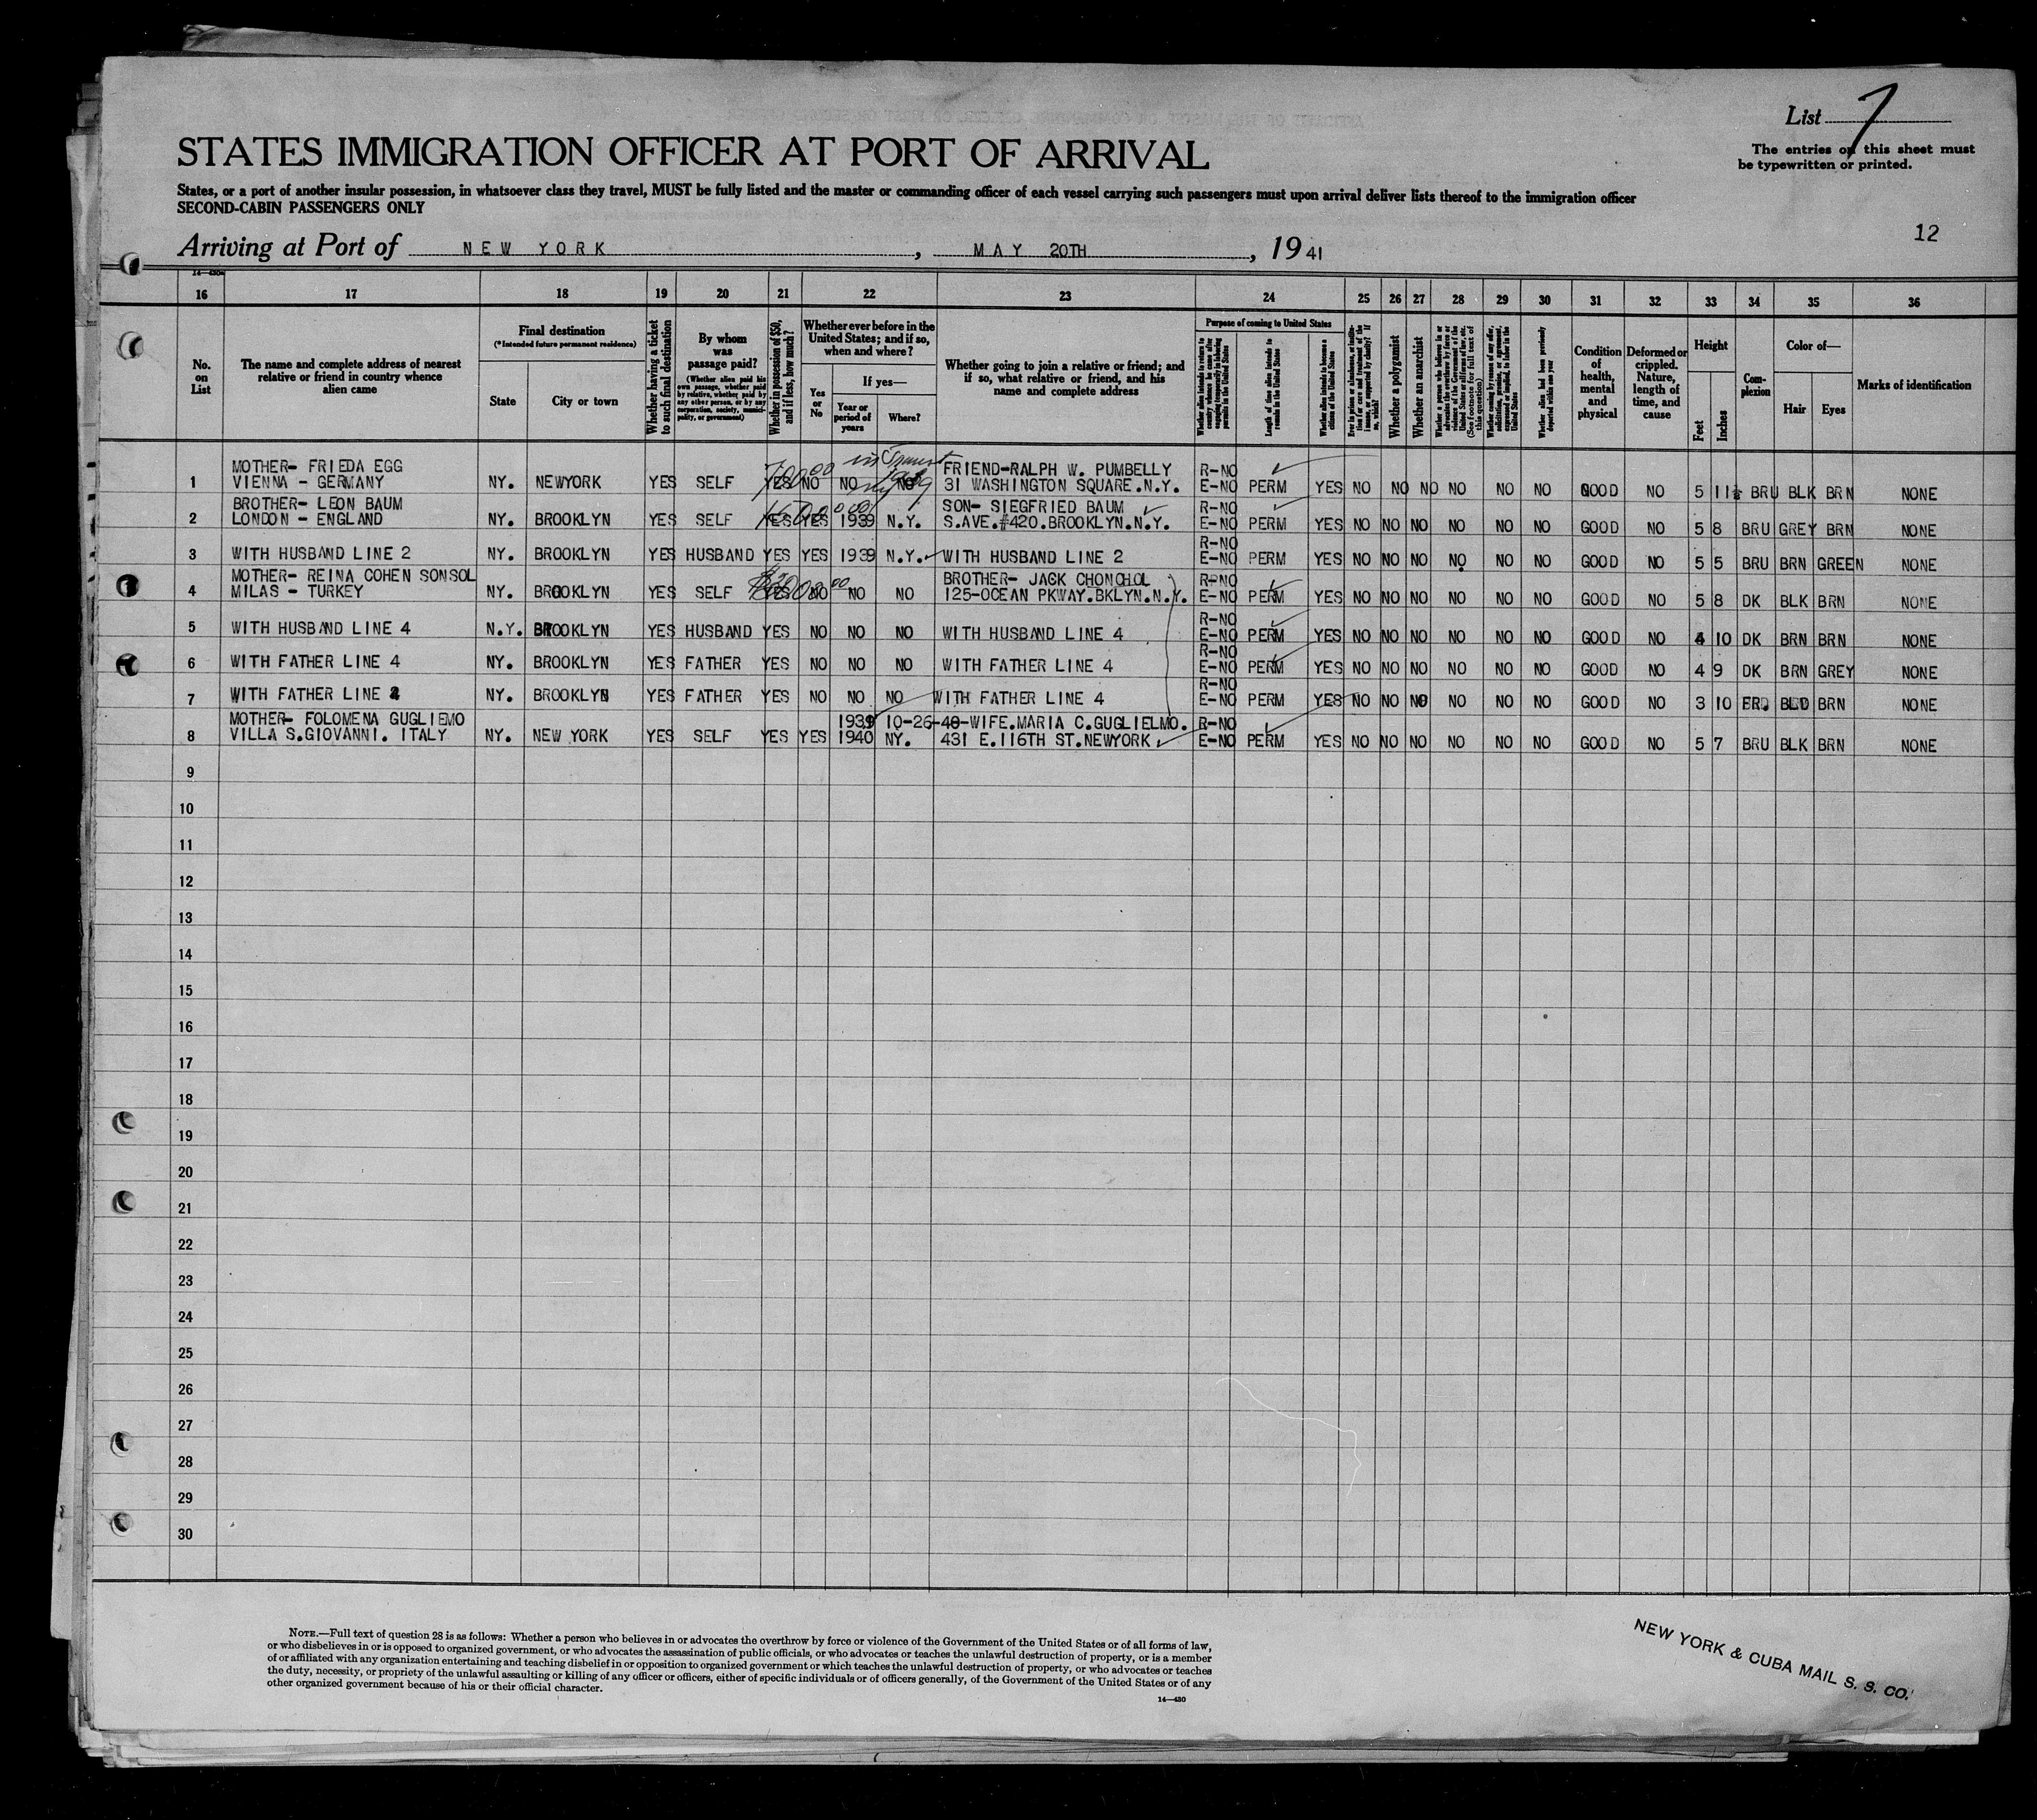 List 7
The entries on this sheet must
be typewritten or printed.
STATES IMMIGRATION OFFICER AT PORT OF ARRIVAL
States, or a port of another insular possession, in whatsoever class they travel, MUST be fully listed and the master or commanding officer of each vessel carrying such passengers must upon arrival deliver lists thereof to the immigration officer
SECOND-CABIN PASSENGERS ONLY
12
Arriving at Port of NEW YORK, MAY 20TH, 19 41
16 17 18 19 20 21 22 23 24 25 26 27 28 29 30 31 32 33 34 35 36
No. on List
The name and complete address of nearest relative or friend in country whence alien came
Final destination
(*Intended future permanent residence)
State
City or town
Whether having a ticket to such final destination
By whom was passage paid?
(Whether alien paid his own passage, whether paid by relative, whether paid by any other person, or by any corporation, society, municipality, or government)
Whether in possession of $50, and if less, how much?
Whether ever before in the United States; and if so, when and where?
Yes or No
If yes—
Year or period of years
Where?
Whether going to join a relative or friend; and if so, what relative or friend, and his name and complete address
Purpose of coming to United States
Length of time alien intends to remain in the United States
Whether alien intends to become a citizen of the United States
Whether a polygamist
Whether an anarchist
Condition of health, mental and physical
Deformed or crippled. Nature, length of time, and cause
Height
Feet
Inches
Complexion
Color of—
Hair
Eyes
Marks of identification
in Transit
MOTHER- FRIEDA EGG FRIEND-RALPH W. PUMBELLY R-NO
1 VIENNA - GERMANY NY. NEWYORK YES SELF YES NO NO NO 31 WASHINGTON SQUARE.N.Y. E-NO PERM YES NO NO NO NO NO NO GOOD NO 5 11½ BRU BLK BRN NONE
BROTHER- LEON BAUM SON- SIEGFRIED BAUM R-NO
2 LONDON - ENGLAND NY. BROOKLYN YES SELF YES YES 1939 N.Y. S.AVE.#420.BROOKLYN.N.Y. E-NO PERM YES NO NO NO NO NO NO GOOD NO 5 8 BRU GREY BRN NONE
R-NO
3 WITH HUSBAND LINE 2 NY. BROOKLYN YES HUSBAND YES YES 1939 N.Y. WITH HUSBAND LINE 2 E-NO PERM YES NO NO NO NO NO NO GOOD NO 5 5 BRU BRN GREEN NONE
MOTHER- REINA COHEN SONSOL BROTHER- JACK CHONCHOL R-NO
4 MILAS - TURKEY NY. BROOKLYN YES SELF YES NO NO NO 125-OCEAN PKWAY.BKLYN.N.Y. E-NO PERM YES NO NO NO NO NO NO GOOD NO 5 8 DK BLK BRN NONE
R-NO
5 WITH HUSBAND LINE 4 N.Y. BROOKLYN YES HUSBAND YES NO NO NO WITH HUSBAND LINE 4 E-NO PERM YES NO NO NO NO NO NO GOOD NO 4 10 DK BRN BRN NONE
R-NO
6 WITH FATHER LINE 4 NY. BROOKLYN YES FATHER YES NO NO NO WITH FATHER LINE 4 E-NO PERM YES NO NO NO NO NO NO GOOD NO 4 9 DK BRN GREY NONE
R-NO
7 WITH FATHER LINE 4 NY. BROOKLYN YES FATHER YES NO NO NO WITH FATHER LINE 4 E-NO PERM YES NO NO NO NO NO NO GOOD NO 3 10 BRN NONE
MOTHER- FOLOMENA GUGLIEMO 1939 10-26-40-WIFE.MARIA C.GUGLIELMO. R-NO
8 VILLA S.GIOVANNI. ITALY NY. NEW YORK YES SELF YES YES 1940 NY. 431 E.116TH ST.NEWYORK E-NO PERM YES NO NO NO NO NO NO GOOD NO 5 7 BRU BLK BRN NONE
9
10
11
12
13
14
15
16
17
18
19
20
21
22
23
24
25
26
27
28
29
30
NOTE.—Full text of question 28 is as follows: Whether a person who believes in or advocates the overthrow by force or violence of the Government of the United States or of all forms of law,
or who disbelieves in or is opposed to organized government, or who advocates the assassination of public officials, or who advocates or teaches the unlawful destruction of property, or is a member
of or affiliated with any organization entertaining and teaching disbelief in or opposition to organized government or which teaches the unlawful destruction of property, or who advocates or teaches
the duty, necessity, or propriety of the unlawful assaulting or killing of any officer or officers, either of specific individuals or of officers generally, of the Government of the United States or of any
other organized government because of his or their official character.
14—430
NEW YORK & CUBA MAIL S. S. CO.